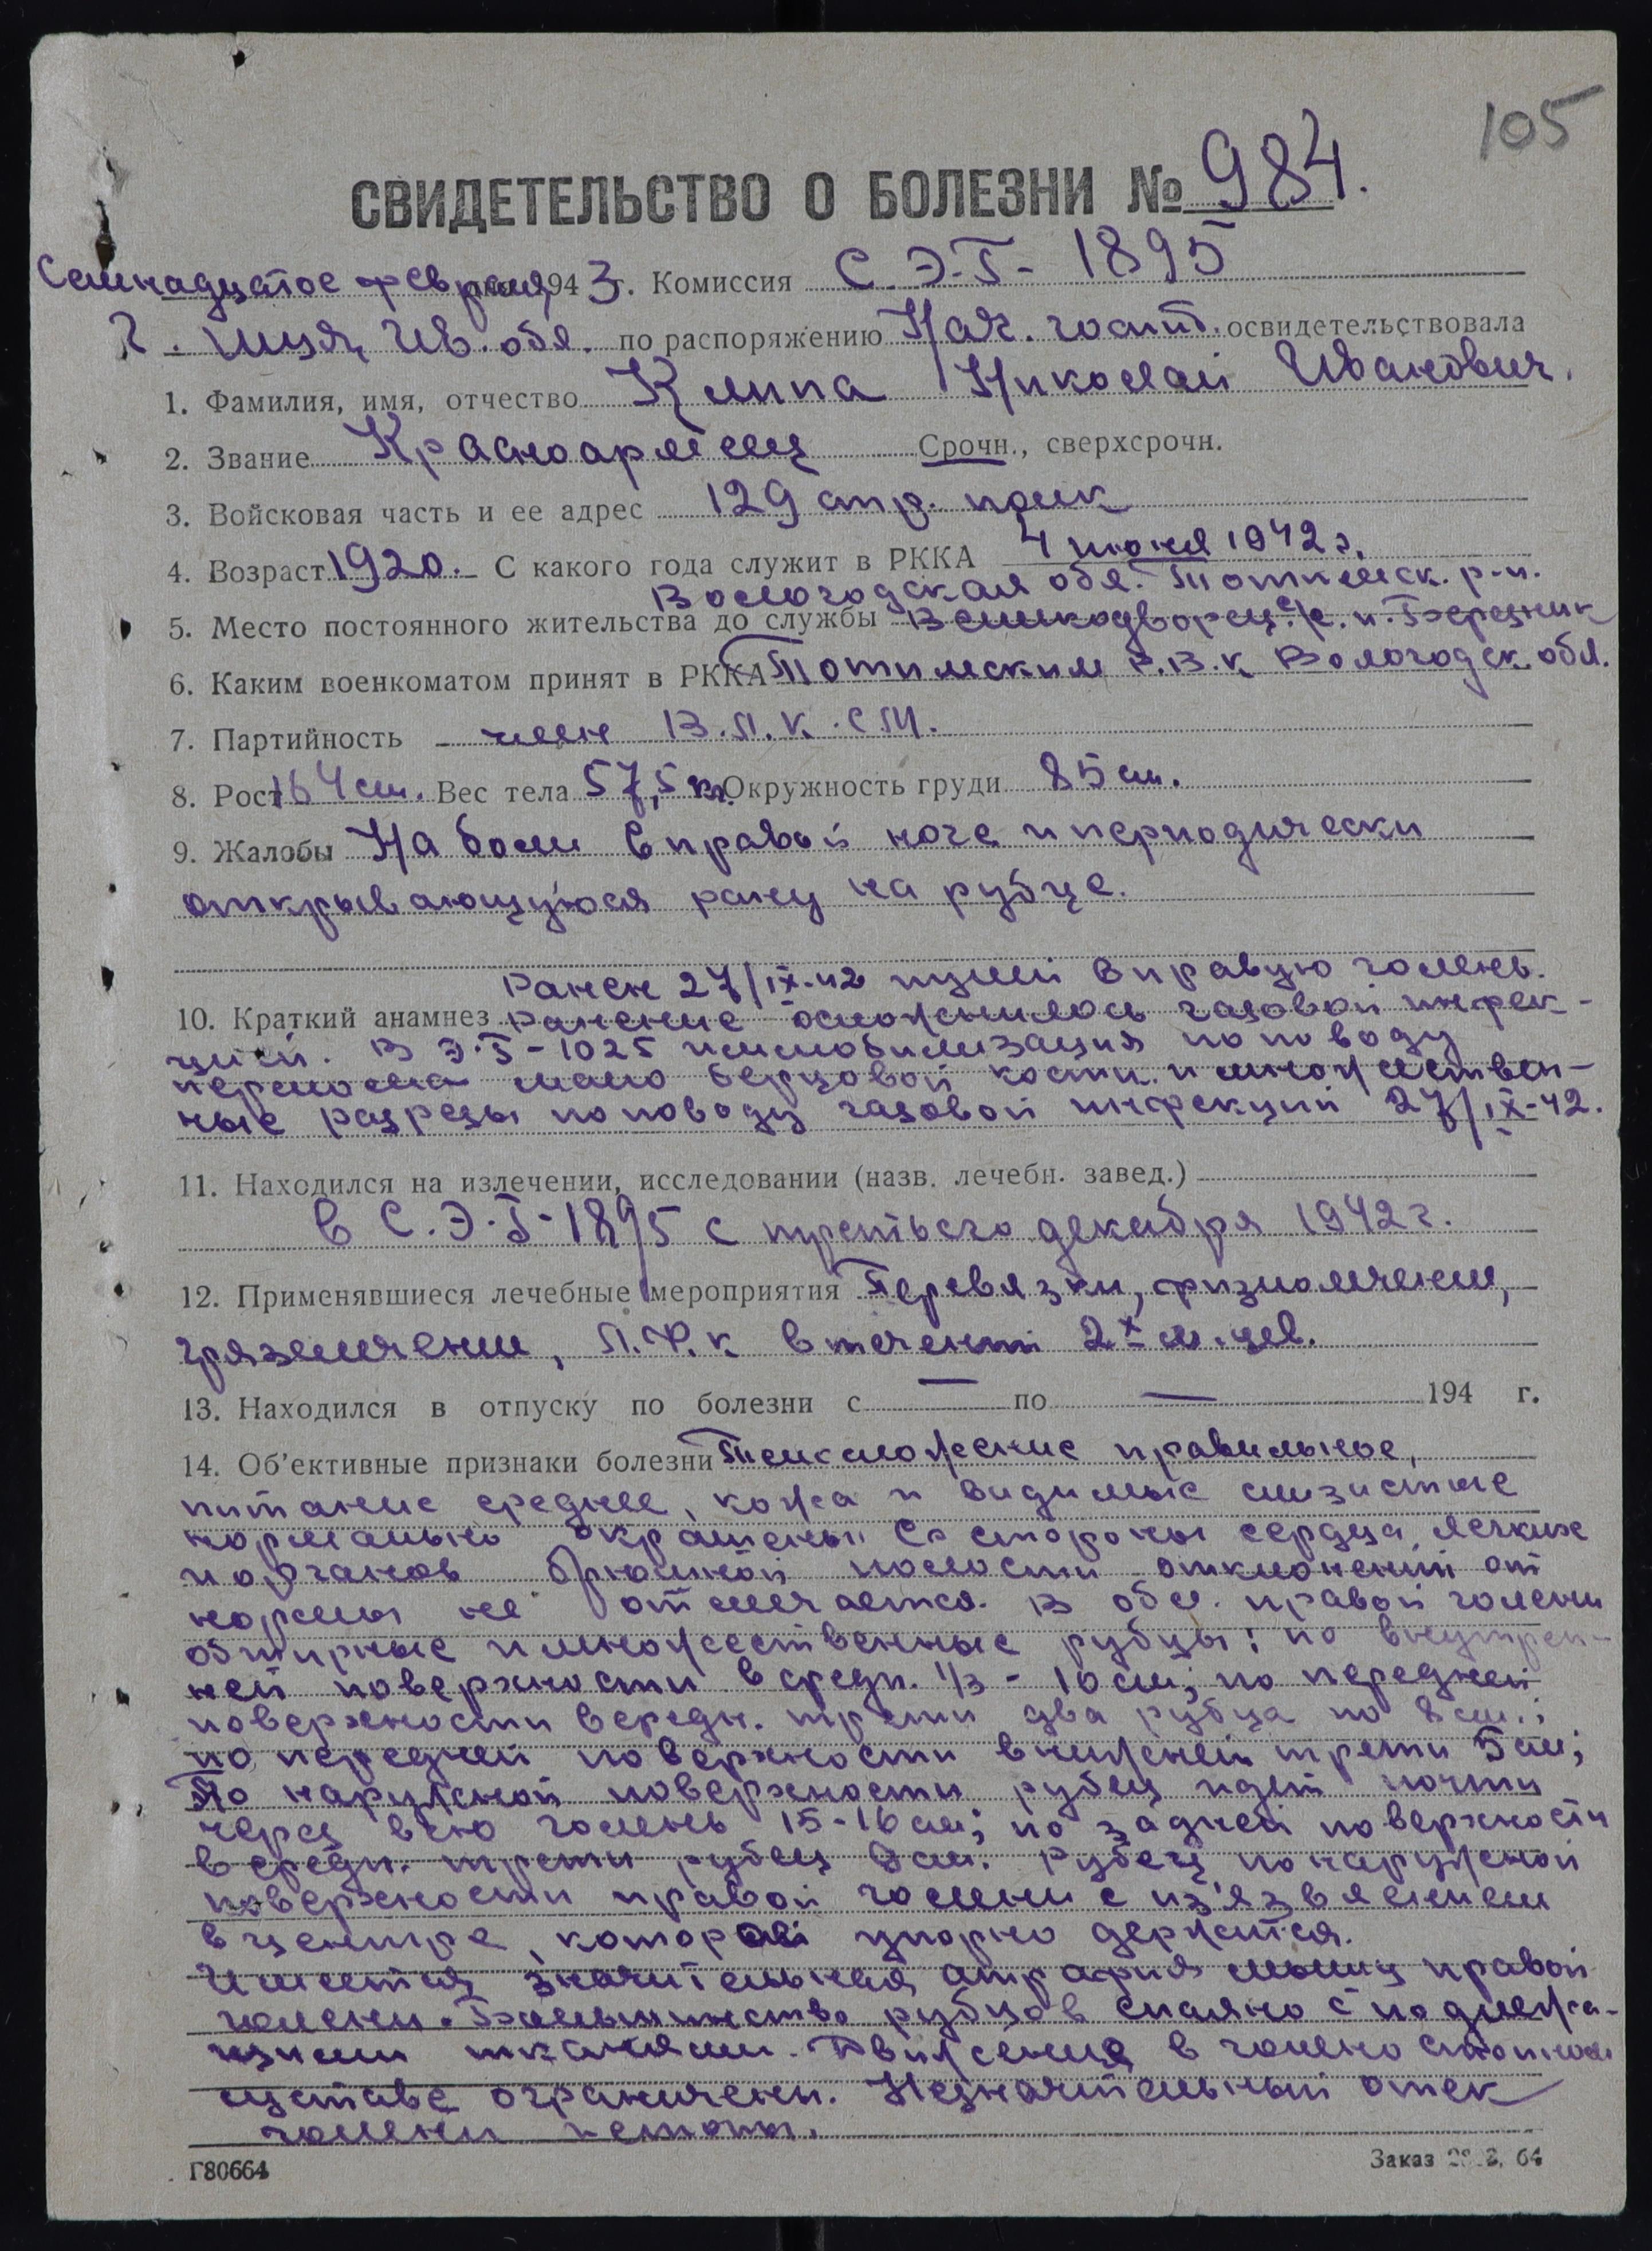 105
СВИДЕТЕЛЬСТВО О БОЛЕЗНИ № 984.
Семнадцатое февраля 1943 г. Комиссия С.Э.Г- 1895
г. Шуя, Ив. обл. по распоряжению Нач. госпит. освидетельствовала
1. Фамилия, имя, отчество Клипа Николай Иванович.
2. Звание Красноармеец Срочн., сверхсрочн.
3. Войсковая часть и ее адрес 129 стр. полк
4. Возраст 1920. С какого года служит в РККА 4 июня 1942 г.
Вологодская обл. Тотемск. р-н.
5. Место постоянного жительства до службы Великодворец. с/с. н. Березник
6. Каким военкоматом принят в РККА Тотемским Р.В.К Вологодск. обл.
7. Партийность член В.Л.К.СМ.
8. Рост 164 см. Вес тела 57,5 кг. Окружность груди 85 см.
9. Жалобы На боли в правой ноге и периодически
открывающуюся рану на рубце.
Ранен 27/IX-42 пулей в правую голень.
10. Краткий анамнез Ранение осложнилось газовой инфек-
цией. В Э.Г-1025 иммобилизация по поводу
перелома мало берцовой кости и множествен-
ные разрезы по поводу газовой инфекций 27/IX-42.
11. Находился на излечении, исследовании (назв. лечебн. завед.)
в С.Э.Г-1895 с третьего декабря 1942 г.
12. Применявшиеся лечебные мероприятия Перевязки, физиолечение,
грязелечение, Л.Ф.К в течении 2х м-цев.
13. Находился в отпуску по болезни с — по — 194 г.
14. Об'ективные признаки болезни Телосложение правильное,
питание среднее, кожа и видимые слизистые
нормально окрашены. Со стороны сердца, легких
и органов брюшной полости отклонений от
нормы не отмечается. В обл. правой голени
обширные и множественные рубцы: по внутрен-
ней поверхности в средн. 1/3 - 10 см; по передней
поверхности в средн. трети два рубца по 8 см.;
по передней поверхности в нижней трети 5 см;
По наружной поверхности рубец идет почти
через всю голень 15-16 см; по задней поверхности
в средн. трети рубец 8 см. Рубец по наружной
поверхности правой голени с из'язвлением
в центре, которой упорно держится.
Имеется значительная атрофия мышц правой
голени. Большинство рубцов спаяно с подлежа-
щими тканями. Движения в голено стопном
суставе ограничены. Незначительный отек
голени и стопы.
Г80664
Заказ 64